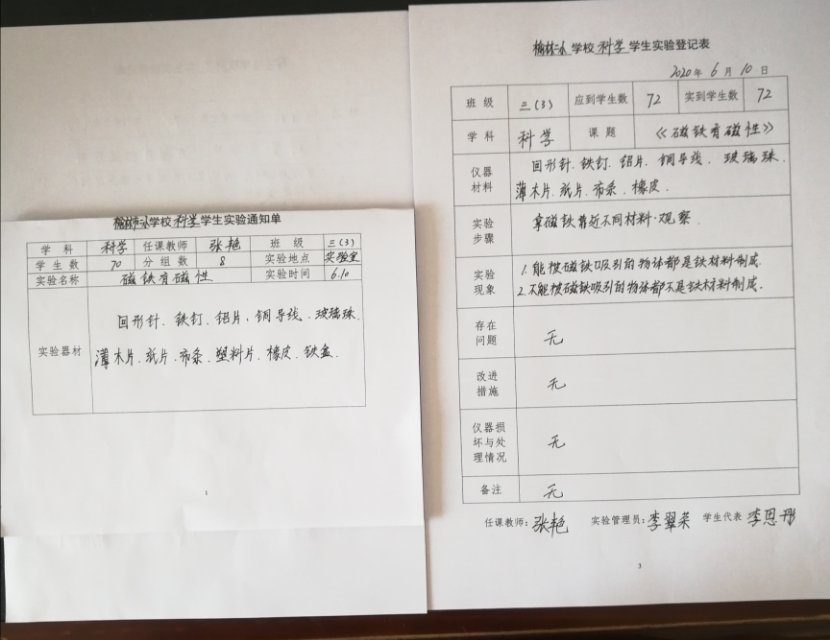 榆林二小学校科学学生实验通知单
学 科 科学 任课教师 张艳 班 级 三(3)
学 生 数 70 分 组 数 8 实验地点 实验室
实验名称 磁铁有磁性 实验时间 6.10
实验器材
回形针、铁钉、铝片、铜导线、玻璃珠、
薄木片、纸片、布条、塑料片、橡皮、铁盒、
1
榆林二小学校科学学生实验登记表
2020年 6 月 10 日
班 级 三(3) 应到学生数 72 实到学生数 72
学 科 科学 课 题 《磁铁有磁性》
仪器
材料
回形针、铁钉、铝片、铜导线、玻璃珠、
薄木片、纸片、布条、橡皮、
实验
步骤
拿磁铁靠近不同材料,观察
实验
现象
1.能被磁铁吸引的物体都是铁材料制成.
2.不能被磁铁吸引的物体都不是铁材料制成.
存在
问题
无
改进
措施
无
仪器损
坏与处
理情况
无
备注 无
任课教师:张艳 实验管理员:李翠荣 学生代表 李思彤
3